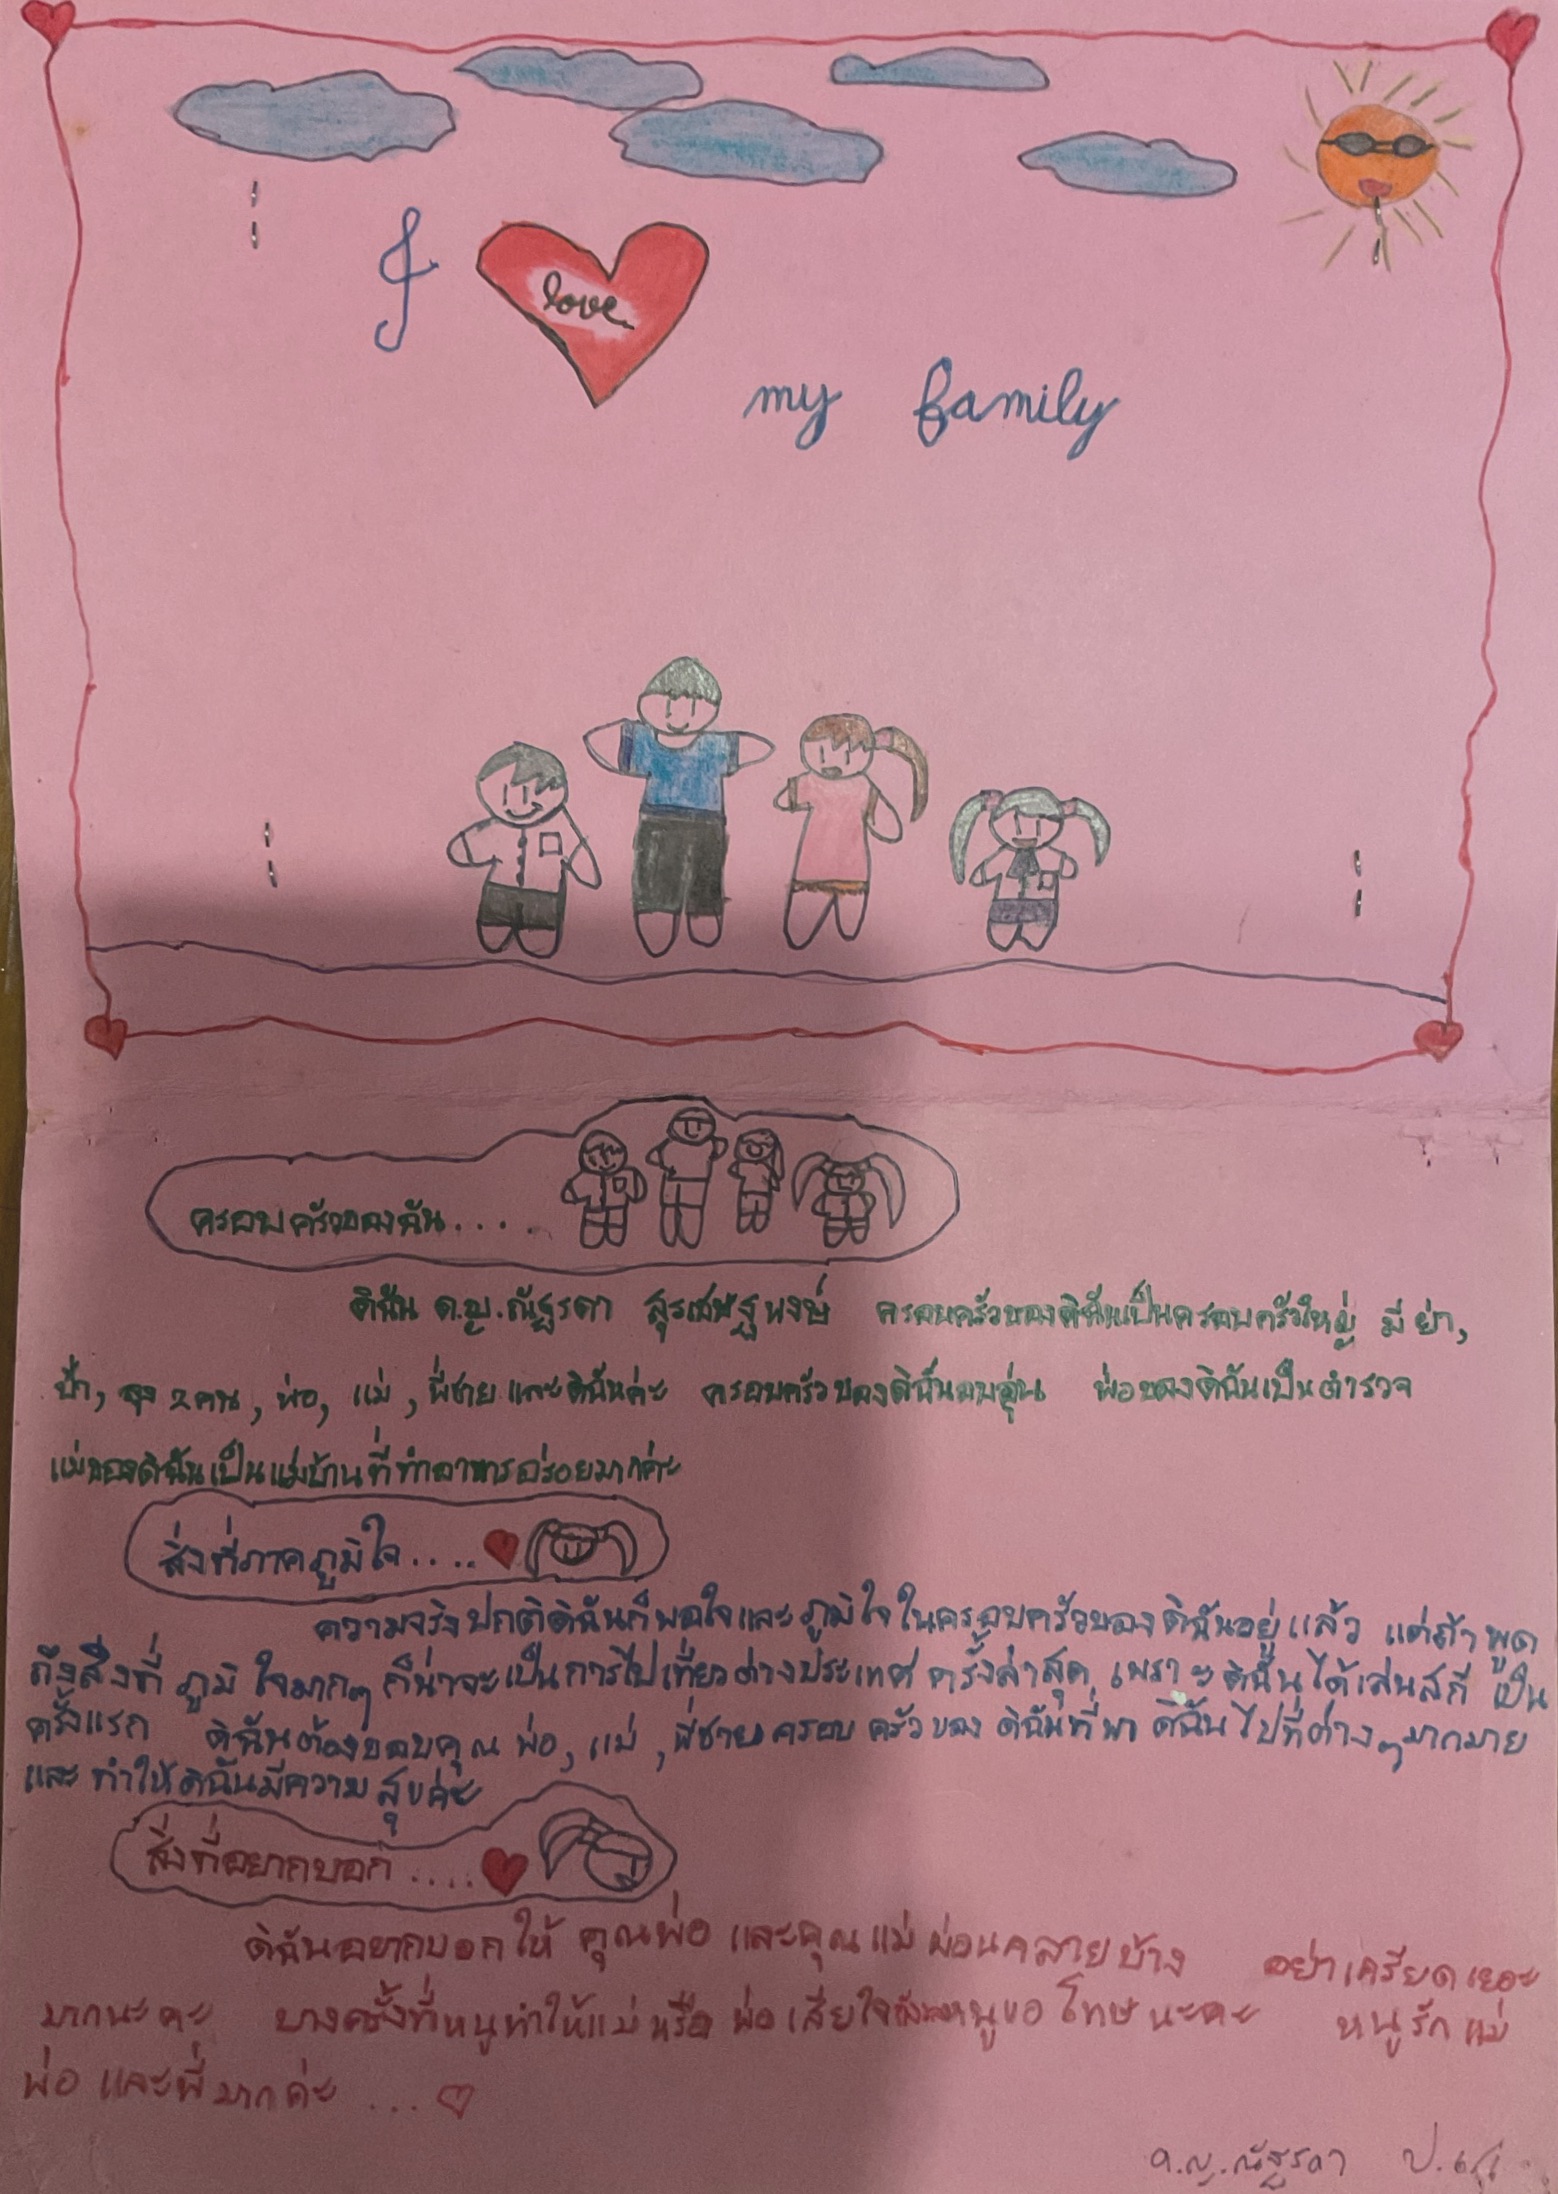 I love my family
ครอบครัวของฉัน.....
ดิฉัน ด.ญ.ณัฐรดา สุรเชษฐพงษ์ ครอบครัวของดิฉันเป็นครอบครัวใหญ่ มี ย่า,
ป้า, ลุง 2 คน, พ่อ, แม่, พี่ชาย และดิฉันค่ะ ครอบครัวของดิฉันอบอุ่น พ่อของดิฉันเป็นตำรวจ
แม่ของดิฉันเป็นแม่บ้านที่ทำอาหารอร่อยมากค่ะ
สิ่งที่ภาคภูมิใจ....
ความจริงปกติดิฉันก็พอใจและภูมิใจในครอบครัวของดิฉันอยู่แล้ว แต่ถ้าพูด
ถึงสิ่งที่ ภูมิใจมากๆ ก็น่าจะเป็นการไปเที่ยวต่างประเทศครั้งล่าสุด เพราะดิฉันได้เล่นสกี เป็น
ครั้งแรก ดิฉันต้องขอบคุณ พ่อ, แม่, พี่ชาย ครอบครัวของดิฉันที่พาดิฉันไปที่ต่างๆมากมาย
และทำให้ดิฉันมีความสุขค่ะ
สิ่งที่อยากบอก.....
ดิฉันอยากบอกให้ คุณพ่อ และคุณแม่ ผ่อนคลายบ้าง อย่าเครียดเยอะ
มากนะคะ บางครั้งที่หนูทำให้แม่หรือ พ่อเสียใจ หนูขอโทษนะคะ หนูรักแม่
พ่อ และพี่มากค่ะ ...
ด.ญ.ณัฐรดา